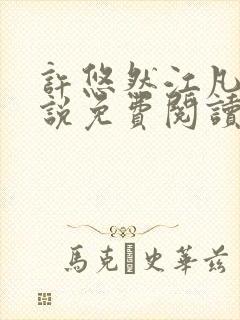 許悠然江凡
說免費閱讀
馬克·史華茲